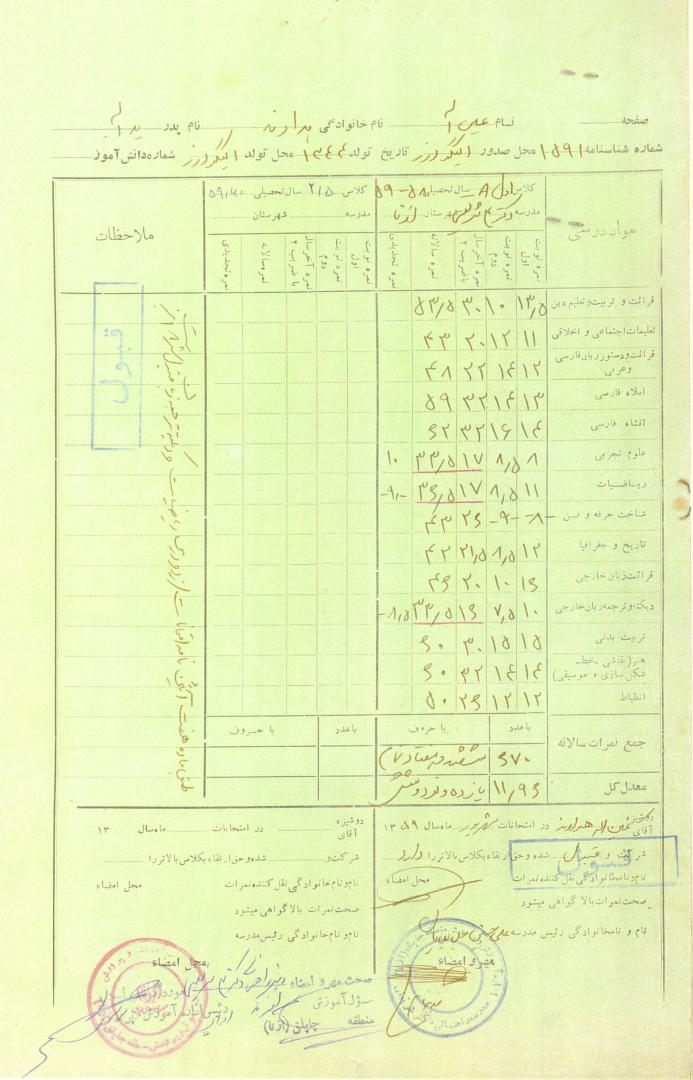 صفحه نام عین اله نام خانوادگی نام پدر یداله
شماره شناسنامه ۱۵۹۱ محل صدور الیگودرز تاریخ تولد ۱۳۴۴ محل تولد الیگودرز شماره دانش‌آموز
مواد درسی کلاس اول A سال تحصیلی ۵۸-۵۹ کلاس سال تحصیلی ملاحظات
مدرسه دکتر شهرستان ازنا مدرسه شهرستان
نمره نوبت اول نمره نوبت دوم نمره آخر سال با ضریب ۲ نمره سالانه نمره تجدیدی نمره نوبت اول نمره نوبت دوم نمره آخر سال با ضریب ۲ نمره سالانه نمره تجدیدی
قرائت و تربیت و تعلیم دین ۱۳٫۵ ۱۰ ۳۰ ۵۳٫۵
تعلیمات اجتماعی و اخلاقی ۱۱ ۱۲ ۲۰ ۴۳
قرائت و دستور زبان فارسی وعربی ۱۲ ۱۴ ۲۲ ۴۸
املاء فارسی ۱۳ ۱۴ ۳۲ ۵۹
انشاء فارسی ۱۴ ۱۶ ۳۲ ۶۲
علوم تجربی ۸ ۸٫۵ ۱۷ ۳۳٫۵ ۱۰
ریاضیات ۱۱ ۸٫۵ ۱۷ ۳۶٫۵ -۹-
شناخت حرفه و فن -۸- -۹- ۲۶ ۴۳
تاریخ و جغرافیا ۱۲ ۸٫۵ ۲۱٫۵ ۴۲
قرائت زبان خارجی ۱۶ ۱۰ ۲۰ ۴۶
دیکته و ترجمه زبان خارجی ۱۰ ۷٫۵ ۱۶ ۳۳٫۵ ۸٫۵-
تربیت بدنی ۱۵ ۱۵ ۳۰ ۶۰
هنر(نقاشی ـ خط ـ شکل سازی و موسیقی) ۱۴ ۱۴ ۳۲ ۶۰
انظباط ۱۲ ۱۲ ۲۶ ۵۰
باعدد با حروف باعدد با حروف
جمع نمرات سالانه ۶۷۰ ششصد و هفتاد
معدل کل ۱۱٫۹۶ یازده و نود و شش
قبول
دوشیزه آقای عین اله در امتحانات شهریور ماه سال ۱۳۵۹
شرکت و قبول شده و حق ارتقاء بکلاس بالاتر را دارد
قبول
نام و نام خانوادگی نقل کننده نمرات محل امضاء
صحت نمرات بالا گواهی میشود
نام و نام خانوادگی رئیس مدرسه
مهر و امضاء
دوشیزه آقای در امتحانات ماه سال ۱۳
شرکت و شده و حق ارتقاء بکلاس بالاتر را
نام و نام خانوادگی نقل کننده نمرات محل امضاء
صحت نمرات بالا گواهی میشود
نام و نام خانوادگی رئیس مدرسه
محل امضاء
صحت مهر و امضاء
مسؤل آموزش
منطقه جاپلق (ازنا)